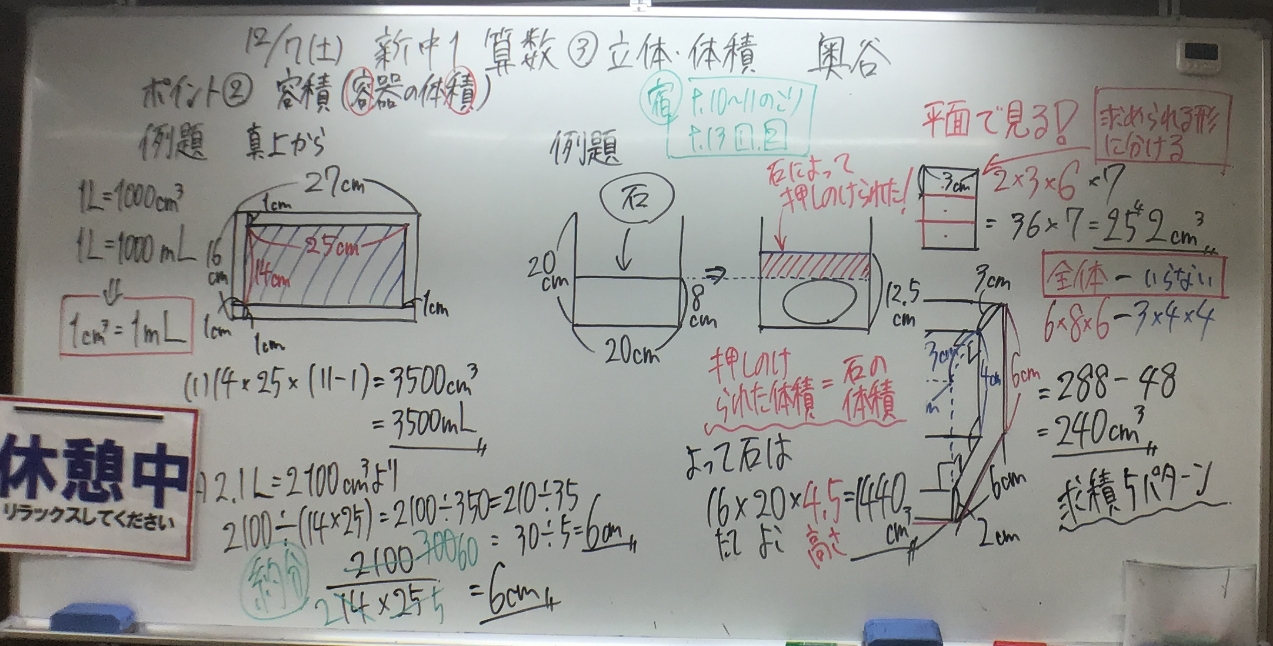 12/7(土) 新中1 算数③立体・体積 奥谷
ポイント② 容積(容器の体積)
宿 P.10~11のこり
P.13 1.2
例題 真上から
1L=1000cm³
1L=1000mL
⇓
1cm³=1mL
27cm
1cm
25cm
16cm
14cm
1cm
1cm
1cm
(1)14×25×(11-1)=3500cm³
=3500mL
2.1L=2100cm³より
2100÷(14×25)=2100÷350=210÷35
=30÷5=6cm
約分
2100 300 60
2 14×25 5
=6cm
例題
石
20cm
8cm
20cm
⇒
石によって
押しのけられた!
12.5cm
押しのけられた体積=石の体積
よって石は
16×20×4.5=1440cm³
たて よこ 高さ
平面で見る!
求められる形
に分ける
3cm
2×3×6×7
=36×7=252cm³
4
全体-いらない
6×8×6-3×4×4
=288-48
=240cm³
3cm
3cm
4cm
6cm
m
6cm
2cm
求積5パターン
休憩中
リラックスしてください